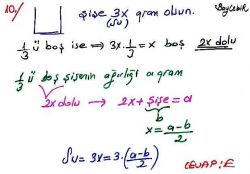 10.) Şişe 3x gram olsun.
(su)
1/3 ü boş ise ⇒ 3x.1/3 = x boş 2x dolu
1/3 ü boş şişenin ağırlığı a gram
2x dolu → 2x + şişe = a
b
x = a-b/2
Su = 3x = 3.(a-b/2)
CEVAP: E